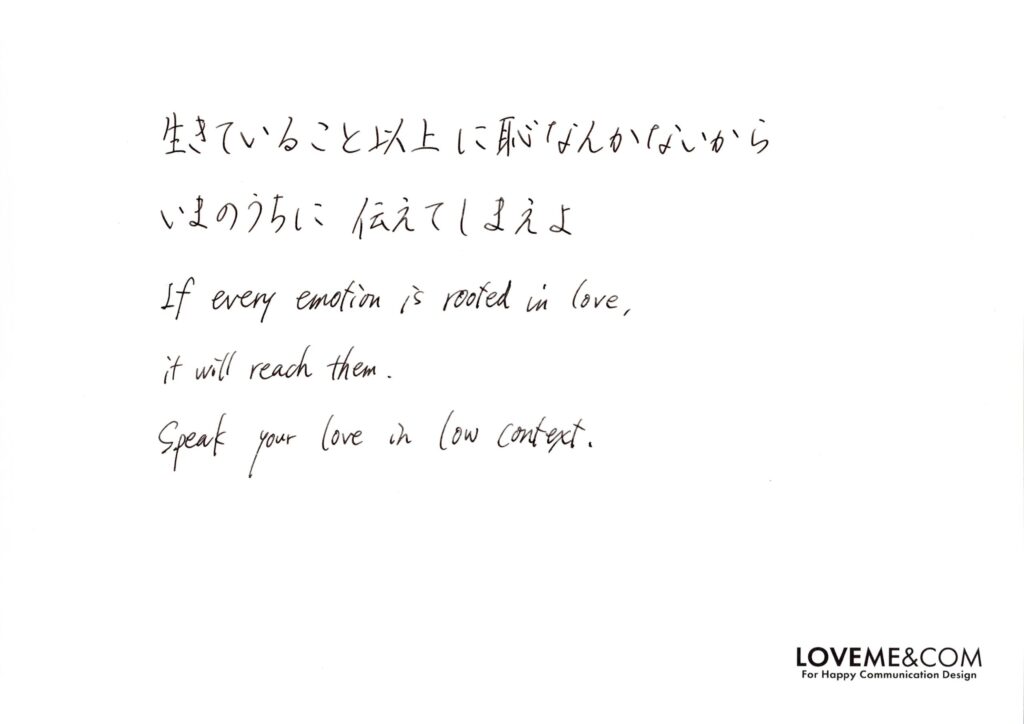 生きていること以上に恥なんかないから
いまのうちに 伝えてしまえよ
If every emotion is rooted in love,
it will reach them.
Speak your love in low context.
LOVEME&COM
For Happy Communication Design